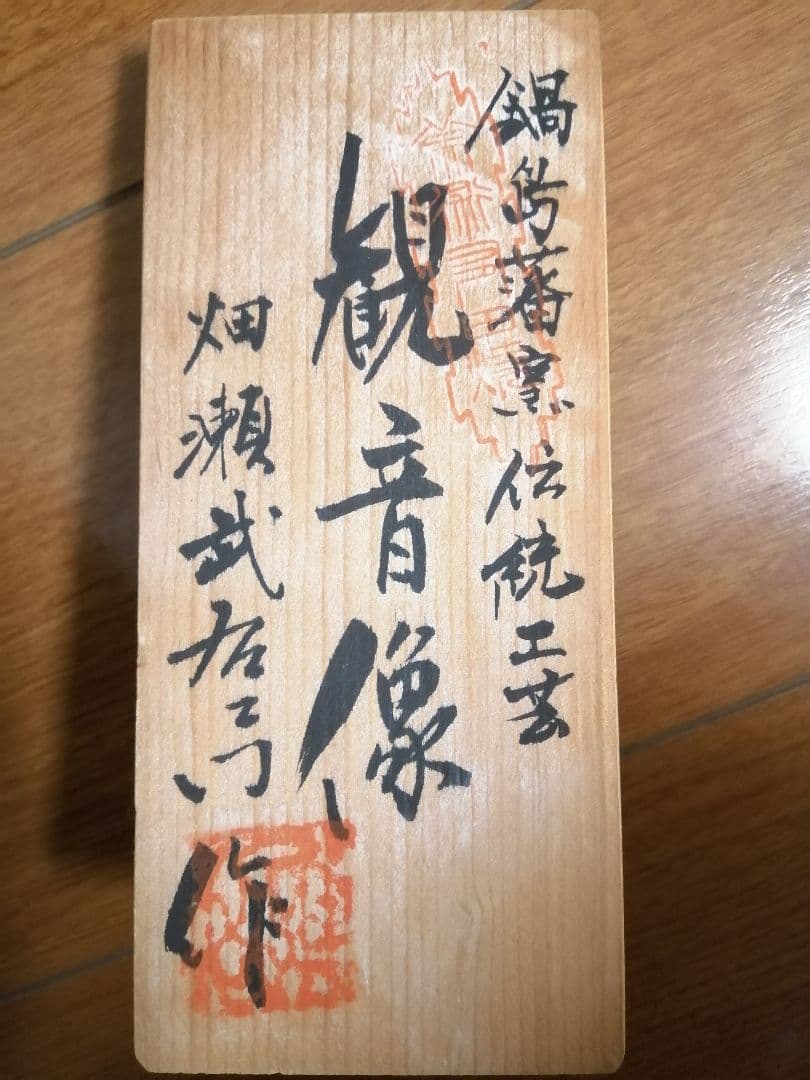 鍋島藩窯伝統工芸
観音像
畑瀬武右エ門作